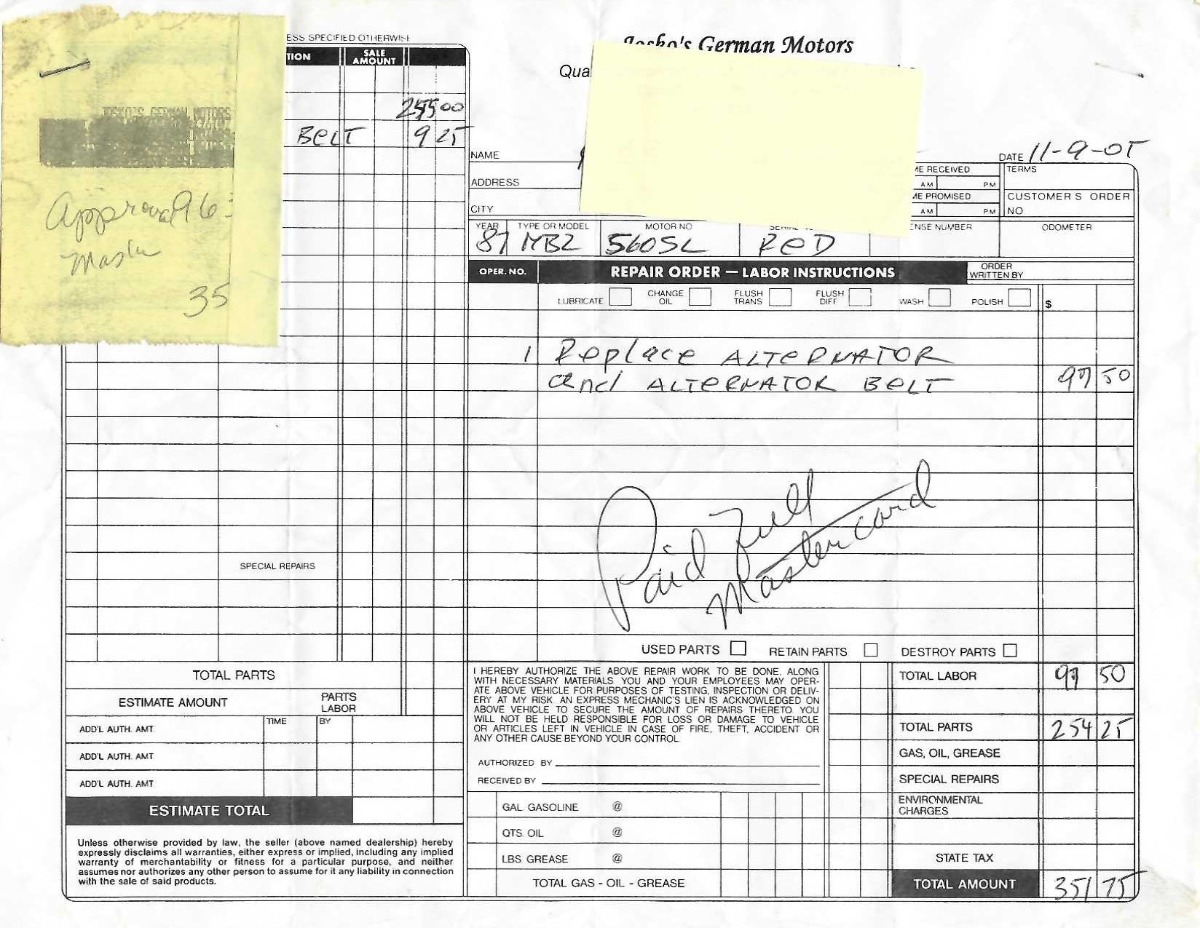 ESS SPECIFIED OTHERWISE
TION SALE AMOUNT
00
BELT 9 25
JOSKO'S GERMAN MOTORS
Approval 963
Master
35
Josko's German Motors
Qua
DATE 11-9-05
NAME
ADDRESS
CITY
ME RECEIVED
AM PM
ME PROMISED
AM PM
TERMS
CUSTOMER'S ORDER
NO
YEAR TYPE OR MODEL MOTOR NO ENSE NUMBER ODOMETER
87 MBZ 560SL RED
OPER. NO. REPAIR ORDER — LABOR INSTRUCTIONS ORDER WRITTEN BY
LUBRICATE CHANGE OIL FLUSH TRANS FLUSH DIFF WASH POLISH $
1 Replace ALTERNATOR
and ALTERNATOR BELT 97 50
Paid Full
Mastercard
SPECIAL REPAIRS
USED PARTS RETAIN PARTS DESTROY PARTS
TOTAL PARTS
ESTIMATE AMOUNT PARTS LABOR
ADD'L AUTH. AMT. TIME BY
ADD'L AUTH. AMT
ADD'L AUTH. AMT
ESTIMATE TOTAL
Unless otherwise provided by law, the seller (above named dealership) hereby
expressly disclaims all warranties, either express or implied, including any implied
warranty of merchantability or fitness for a particular purpose, and neither
assumes nor authorizes any other person to assume for it any liability in connection
with the sale of said products.
I HEREBY AUTHORIZE THE ABOVE REPAIR WORK TO BE DONE, ALONG
WITH NECESSARY MATERIALS YOU AND YOUR EMPLOYEES MAY OPER-
ATE ABOVE VEHICLE FOR PURPOSES OF TESTING, INSPECTION OR DELIV-
ERY AT MY RISK. AN EXPRESS MECHANIC'S LIEN IS ACKNOWLEDGED ON
ABOVE VEHICLE TO SECURE THE AMOUNT OF REPAIRS THERETO. YOU
WILL NOT BE HELD RESPONSIBLE FOR LOSS OR DAMAGE TO VEHICLE
OR ARTICLES LEFT IN VEHICLE IN CASE OF FIRE, THEFT, ACCIDENT OR
ANY OTHER CAUSE BEYOND YOUR CONTROL.
AUTHORIZED BY
RECEIVED BY
GAL. GASOLINE @
QTS. OIL @
LBS GREASE @
TOTAL GAS - OIL - GREASE
TOTAL LABOR 97 50
TOTAL PARTS 254 25
GAS, OIL, GREASE
SPECIAL REPAIRS
ENVIRONMENTAL CHARGES
STATE TAX
TOTAL AMOUNT 351 75